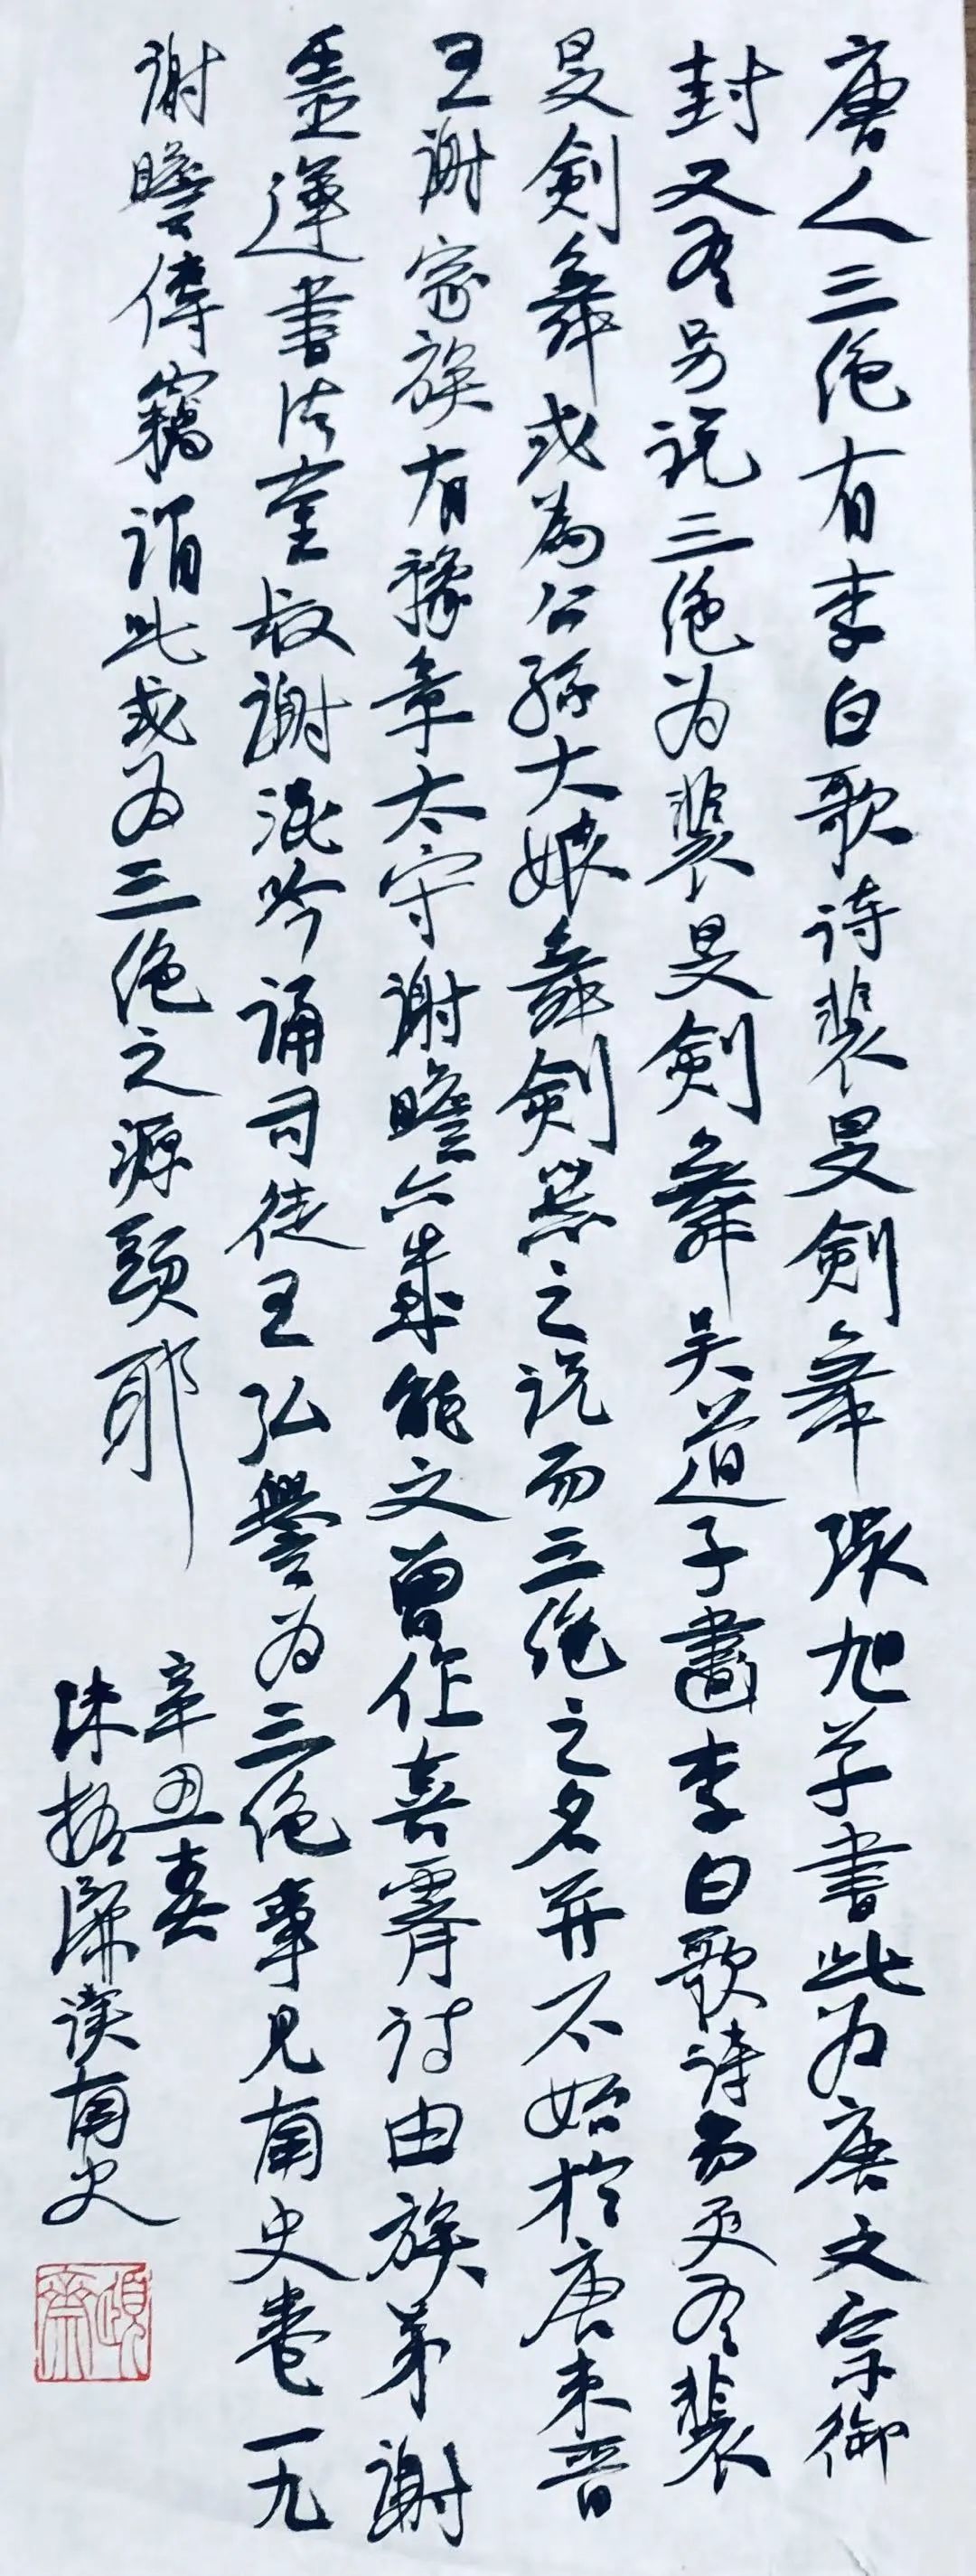 唐人三绝有李白歌诗裴旻剑舞张旭草书此为唐文宗御
封又有另说三绝为裴旻剑舞吴道子畫李白歌诗而更有裴
旻剑舞或為公孫大娘舞剑器之说而三绝之名并不始於唐東晋
王谢家族有豫章太守谢瞻六歲能文曾作喜霽诗由族弟谢
靈運書法童叔谢混吟诵司徒王弘譽为三绝事见南史卷一九
谢瞻傳竊谓此或为三绝之源頭耶
辛丑春
陈振濂读南史